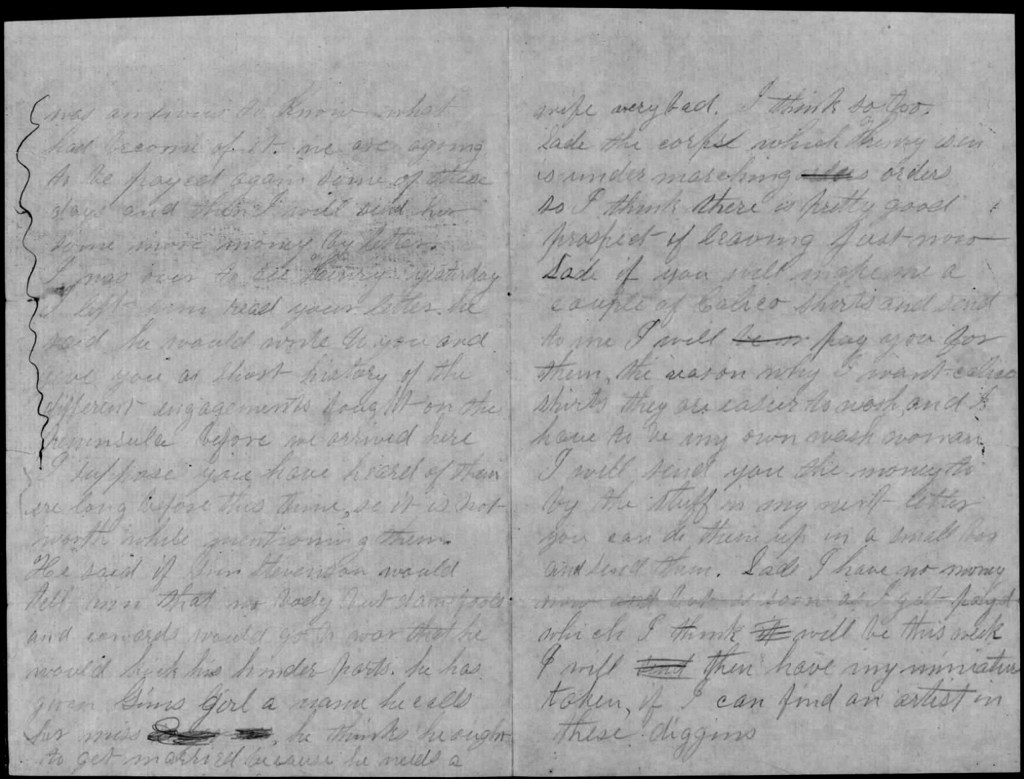 was anxious to know what
had become of it. we are agoing
to be payed again some of these
days and then I will send her
some more money by letter.
I was over to see Henry yesterday
I left him read your letter. he
said he would write to you and
give you a short history of the
different engagements fought on the
peninsula before we arrived here
I suppose you have heard of them
ere long before this time, so it is not
worth while mentioning them.
He said if Jim Stevenson would
tell him that no body but dam fools
and cowards would go to war that he
would kick his hinder parts. he has
given Gims Girl a name he calls
her miss, he thinks he ought
to get married because he needs a
wife very bad. I think so too.
Sade the corpse which Henry is in
is under marching orders
so I think there is pretty good
prospect of leaving just now
Sade if you will make me a
couple of Calico shirts and send
to me I will be or pay you for
them, the reason why I want calico
shirts they are easier to wash and I
have to be my own wash woman,
I will send you the money to
by the stuff in my next letter
you can do them up in a small box
and send them. Sade I have no money
now and but as soon as I get payd
which I think it will be this week
I will send then have my miniature
taken, if I can find an artist in
these diggins